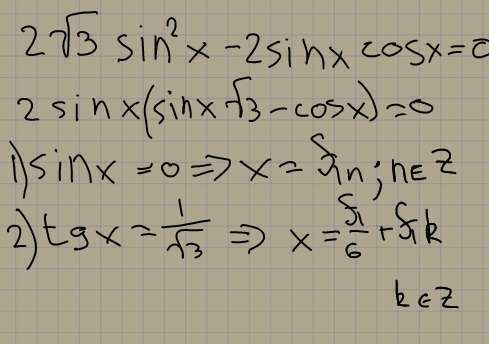 2√3 sin²x - 2sinx cosx = 0
2 sinx(sinx √3 - cosx) = 0
1) sinx = 0 => x = πn; n ∈ Z
2) tgx = 1/√3 => x = π/6 + πk
k ∈ Z